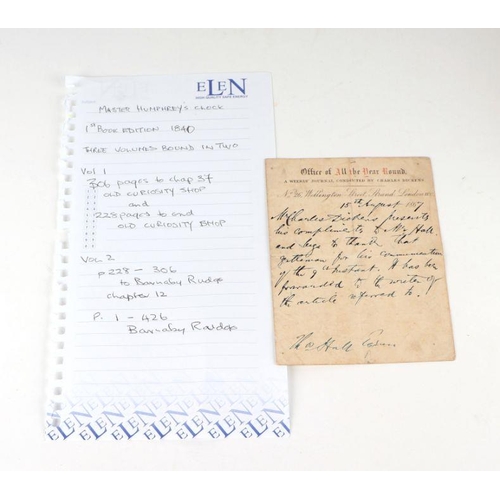 ELEN
HIGH QUALITY SAFE ENERGY
MASTER HUMPHREY'S CLOCK
1st BOOK EDITION 1840
THREE VOLUMES BOUND IN TWO
Vol 1
306 pages to chap 37
OLD CURIOSITY SHOP
and
228 pages to end
OLD CURIOSITY SHOP
VOL 2
p 228 - 306
to Barnaby Rudge
chapter 12
P. 1 - 426
Barnaby Rudge
ELEN ELEN ELEN ELEN
Office of All the Year Round,
A WEEKLY JOURNAL CONDUCTED BY CHARLES DICKENS.
No 26, Wellington Street, Strand, London, W.C.
15th August 1867
Mr Charles Dickens presents
his compliments to Mr Hall
and begs to thank that
gentleman for his communication
of the 9th instant. It has been
forwarded to the writer of
the article referred to.
Thos Hall Esqre